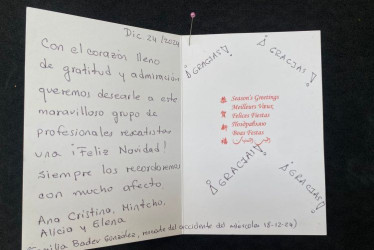 Dic 24/2024
Con el corazón lleno
de gratitud y admiración
queremos desearle a este
maravilloso grupo de
profesionales rescatistas
una ¡Feliz Navidad!
Siempre los recordaremos
con mucho afecto
Ana Cristina,
Alicia y Elena
Familia Bader González, rescate del accidente del miércoles 18-12-24)
¡GRACIAS!
¡GRACIAS!
Season's Greetings
Meilleurs Vœux
Felices Fiestas
Поздравляю
Boas Festas
恭
賀
新
禧
¡GRACIAS!
¡GRACIAS!